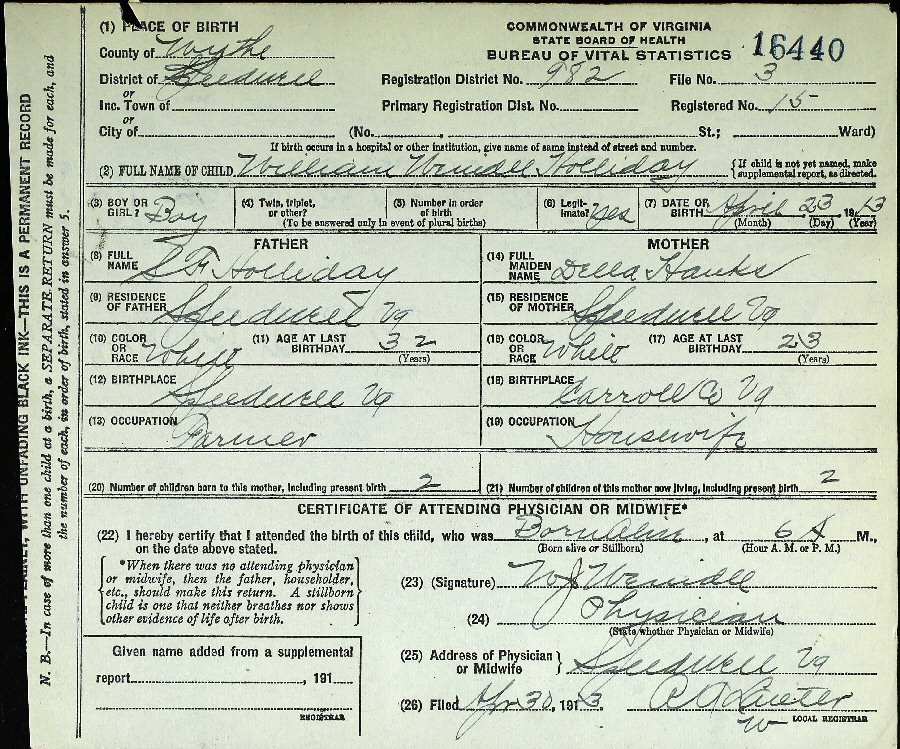 (1) PLACE OF BIRTH
County of Wythe
District of Speedwell
or
Inc. Town of
or
City of (No. , St.; Ward)
COMMONWEALTH OF VIRGINIA
STATE BOARD OF HEALTH
BUREAU OF VITAL STATISTICS
16440
Registration District No. 982 File No. 3
Primary Registration Dist. No. Registered No. 15
If birth occurs in a hospital or other institution, give name of same instead of street and number.
(2) FULL NAME OF CHILD William Wendell Holliday
{If child is not yet named, make
supplemental report, as directed.
(3) BOY OR GIRL? Boy
(4) Twin, triplet, or other?
(5) Number in order of birth
(To be answered only in event of plural births)
(6) Legitimate? Yes
(7) DATE OF BIRTH April 23 1913
(Month) (Day) (Year)
FATHER
(8) FULL NAME S F Holliday
(9) RESIDENCE OF FATHER Speedwell Va
(10) COLOR OR RACE White (11) AGE AT LAST BIRTHDAY 32
(Years)
(12) BIRTHPLACE Speedwell Va
(13) OCCUPATION Farmer
MOTHER
(14) FULL MAIDEN NAME Della Hanks
(15) RESIDENCE OF MOTHER Speedwell Va
(16) COLOR OR RACE White (17) AGE AT LAST BIRTHDAY 23
(Years)
(18) BIRTHPLACE Carroll Co Va
(19) OCCUPATION Housewife
(20) Number of children born to this mother, including present birth 2
(21) Number of children of this mother now living, including present birth 2
CERTIFICATE OF ATTENDING PHYSICIAN OR MIDWIFE*
(22) I hereby certify that I attended the birth of this child, who was Born Alive, at 6 A M.,
(Born alive or Stillborn) (Hour A. M. or P. M.)
on the date above stated.
{*When there was no attending physician
or midwife, then the father, householder,
etc., should make this return. A stillborn
child is one that neither breathes nor shows
other evidence of life after birth.}
(23) (Signature) W J
(24) Physician
(State whether Physician or Midwife)
(25) Address of Physician or Midwife} Speedwell Va
(26) Filed Apr 30, 1913
W LOCAL REGISTRAR
Given name added from a supplemental
report , 191
REGISTRAR
WITH UNFADING BLACK INK—THIS IS A PERMANENT RECORD
N. B.—In case of more than one child at a birth, a SEPARATE RETURN must be made for each, and
the number of each, in order of birth, stated in answer 5.